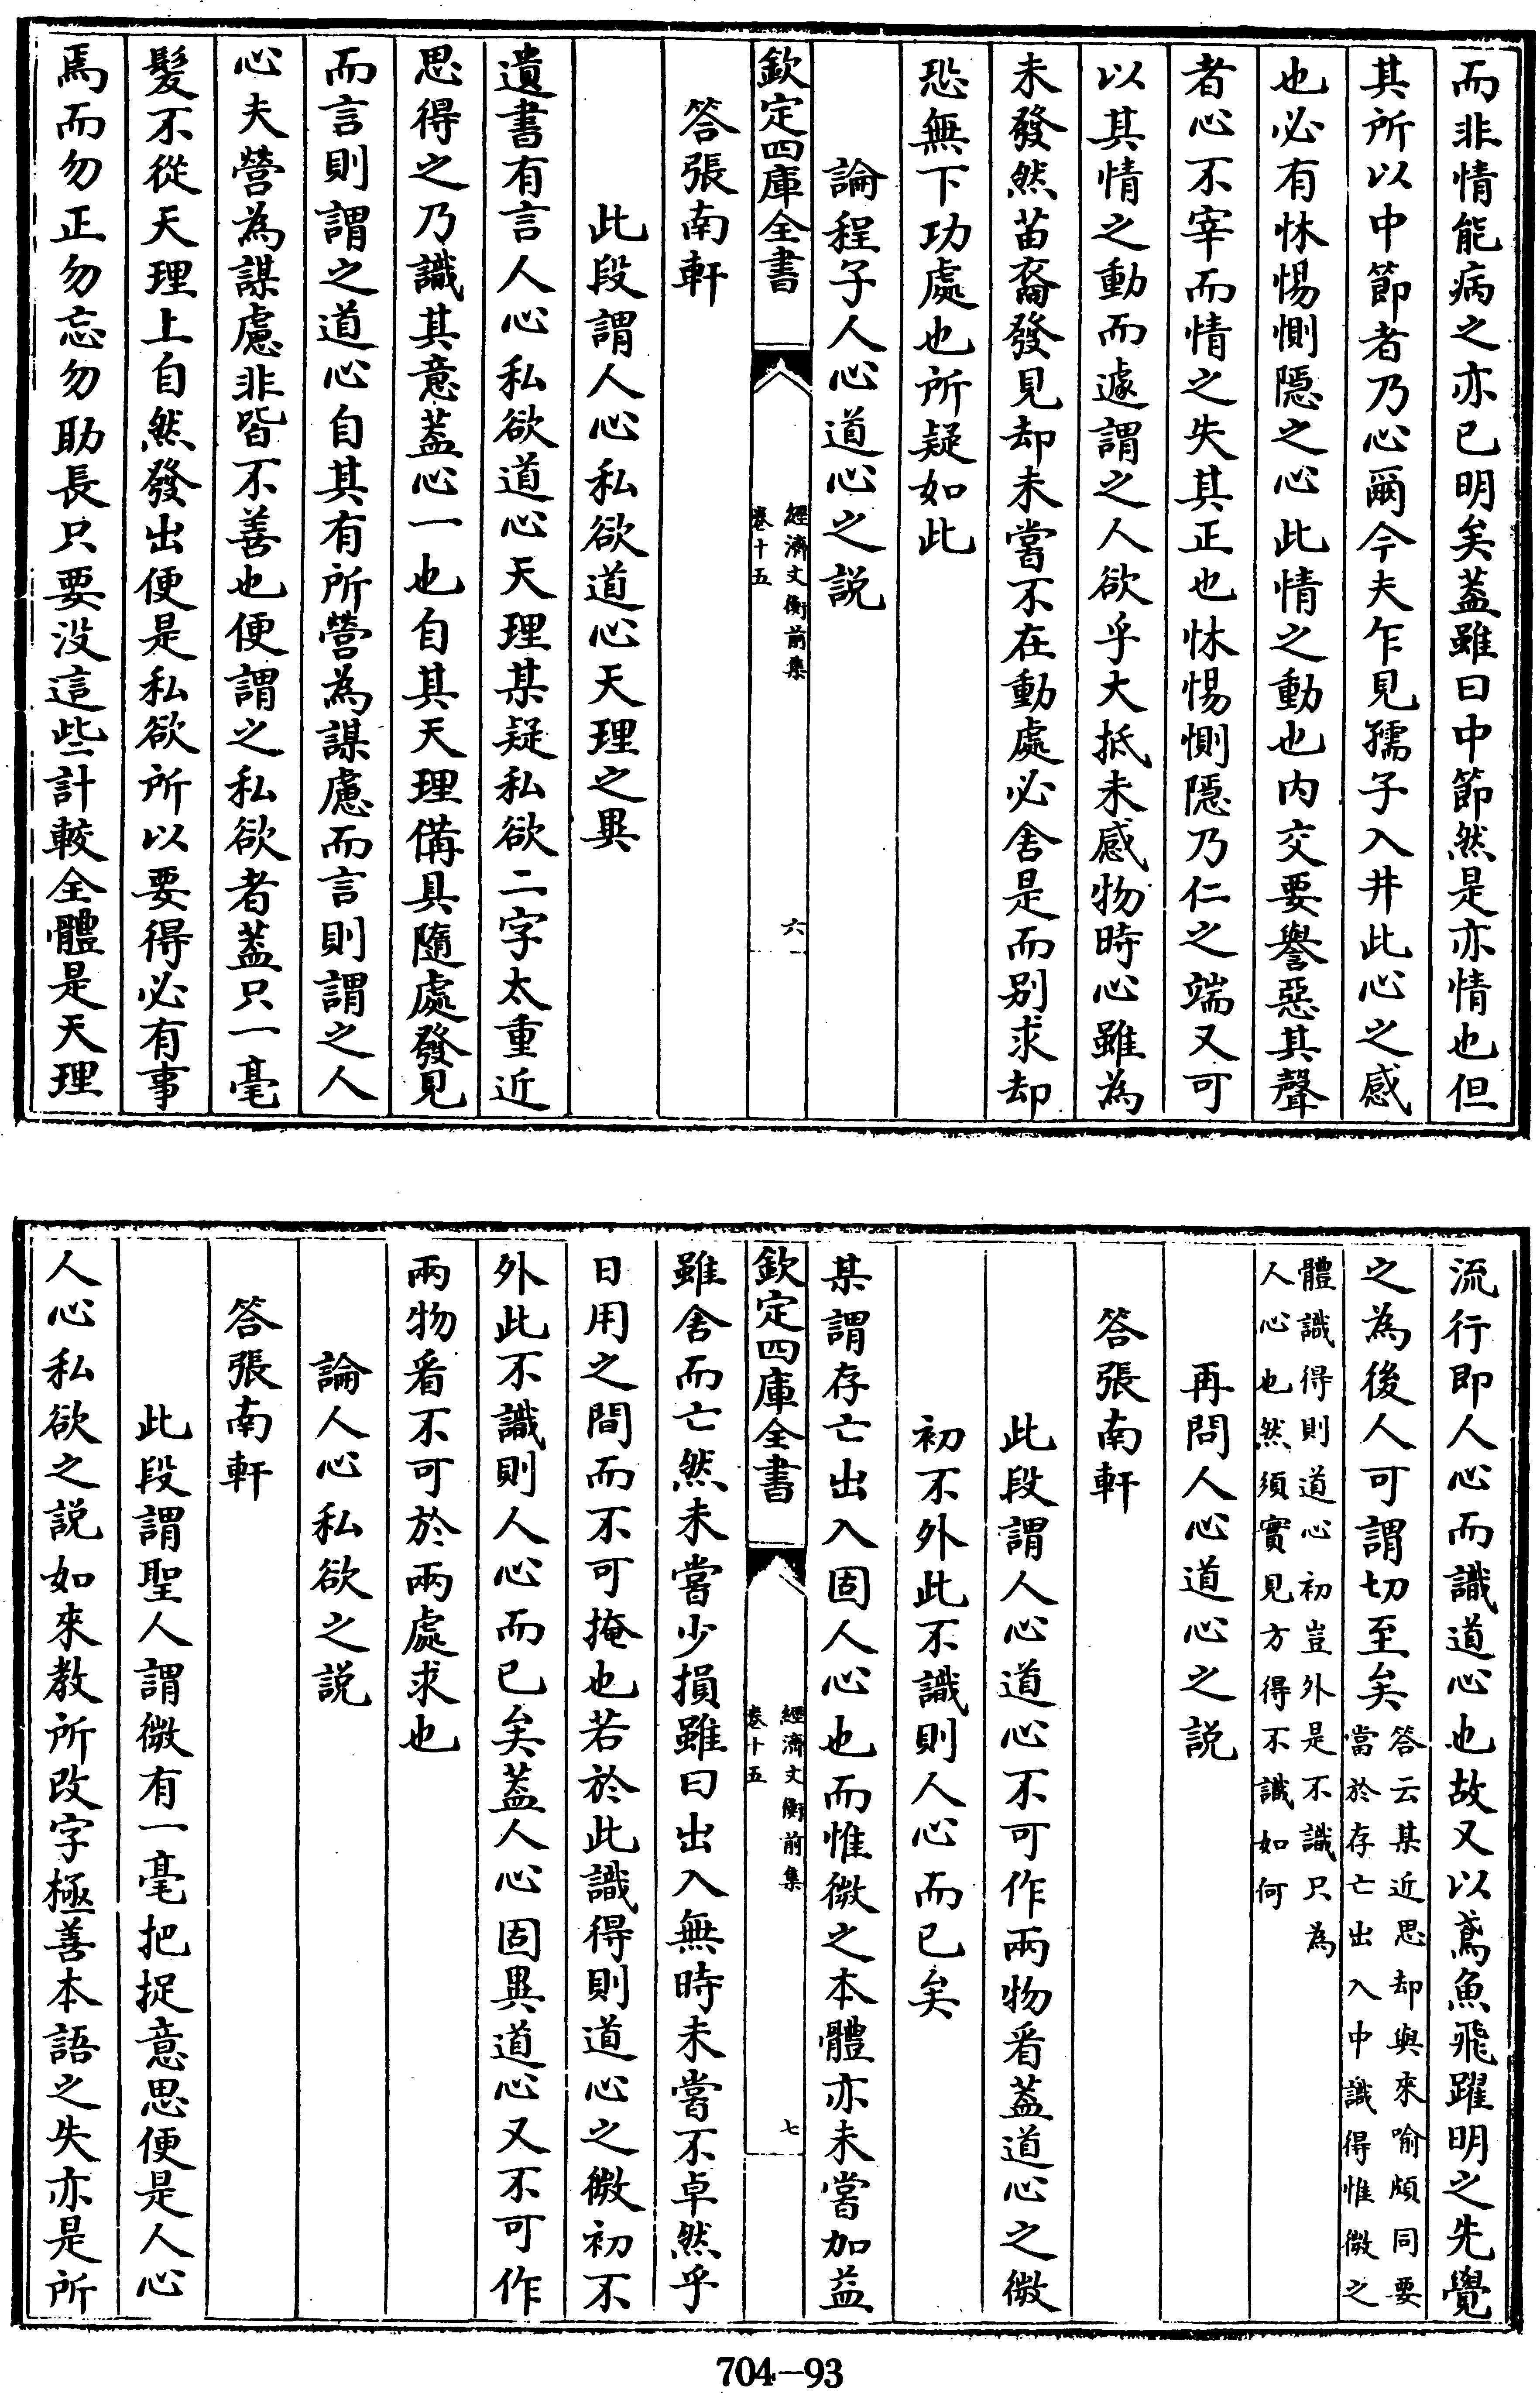 而非情能病之亦已明矣蓋雖曰中節然是亦情也但
其所以中節者乃心爾今夫乍見孺子入井此心之感
也必有怵惕惻隠之心此情之動也内交要譽惡其聲
者心不宰而情之失其正也怵惕惻隠乃仁之端又可
以其情之動而遽謂之人欲乎大抵未感物時心雖為
未發然苗裔發見却未嘗不在動處必舍是而别求却
恐無下功處也所疑如此
論程子人心道心之説
欽定四庫全書
經濟文衡前集
卷十五
六
答張南軒
此段謂人心私欲道心天理之異
遺書有言人心私欲道心天理某疑私欲二字太重近
思得之乃識其意蓋心一也自其天理備具隨處發見
而言則謂之道心自其有所營為謀慮而言則謂之人
心夫營為謀慮非皆不善也便謂之私欲者蓋只一毫
髮不從天理上自然發出便是私欲所以要得必有事
焉而勿正勿忘勿助長只要没這些計較全體是天理
流行即人心而識道心也故又以鳶魚飛躍明之先覺
之為後人可謂切至矣答云某近思却與來喻頗同要
當於存亡出入中識得惟微之
體識得則道心初豈外是不識只為
人心也然須實見方得不識如何
再問人心道心之説
答張南軒
此段謂人心道心不可作兩物看蓋道心之微
初不外此不識則人心而已矣
某謂存亡出入固人心也而惟微之本體亦未嘗加益
欽定四庫全書
經濟文衡前集
卷十五
七
雖舍而亡然未嘗少損雖曰出入無時未嘗不卓然乎
日用之間而不可掩也若於此識得則道心之微初不
外此不識則人心而已矣蓋人心固異道心又不可作
兩物看不可於兩處求也
論人心私欲之説
答張南軒
此段謂聖人謂微有一毫把捉意思便是人心
人心私欲之説如來教所改字極善本語之失亦是所
704-93